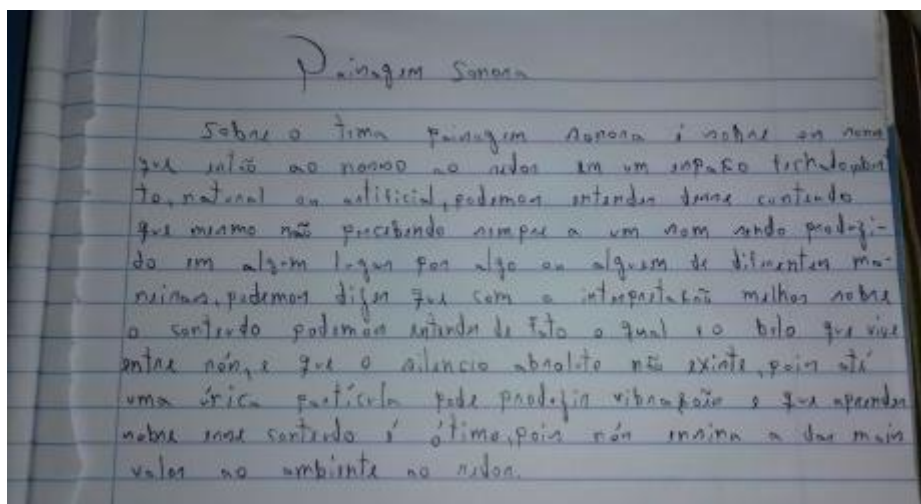 Paisagem Sonora
Sobre o tema paisagem sonora é sobre os sons
que estão ao nosso ao redor em um espaço fechado, aber
to, natural ou artificial, podemos entender desse conteudo
que mesmo não percebendo sempre a um som sendo produzi-
do em algum lugar por algo ou alguem de diferentes ma-
neiras, podemos dizer que com a interpretação melhor sobre
o conteudo podemos entender de fato o qual é o belo que vive
entre nós, e que o silencio absoluto não existe, pois até
uma única partícula pode produzir vibração e que aprender
sobre esse conteudo é ótimo, pois nós ensina a dar mais
valor ao ambiente ao redor.